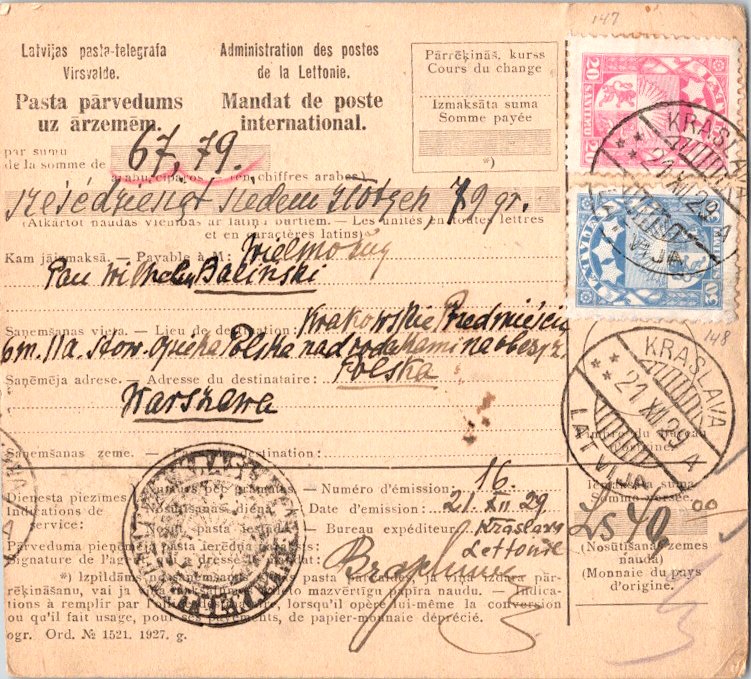 147
Latvijas pasta-telegrafa
Virsvalde.
Pasta pārvedums
uz ārzemēm.
Administration des postes
de la Lettonie.
Mandat de poste
international.
Pārrēķināš. kurss
Cours du change
Izmaksāta suma
Somme payée
*)
par sumu
de la somme de
67,79.
arabu ciparos (en chiffres arabes)
siedem złotych, 79 gr.
(Atkārtot naudas vienības ar latiņu burtiem. — Les unités en toutes lettres
et en caractères latins)
Kam jāizmaksā. — Payable à M.: Wielmożny
Pan Wilhelm Baliński
Saņemšanas vieta. — Lieu de destination: Krakowskie Przedmieście
6 m. 11a. Stow. Opieka Polska nad rodakami na obczyz.
Saņēmēja adrese. — Adresse du destinataire: Polska
Warszawa
Saņemšanas zeme. — destination:
Dienesta piezīmes
Indications de
service:
Numéro d'émission: 16.
Nosūtīšanas diena Date d'émission: 21. XII 29
pasta iestāde — Bureau expéditeur: Krāslava
Lettonie
Pārveduma pieņēmēja pasta ierēdņa
Signature de l'agent
*) Izpildāms
rēķināšanu, vai ja mazvērtīgu papīra naudu. — Indica-
tions à remplir par lorsqu'il opère lui-même la conversion
ou qu'il fait usage, pour ses payements, de papier-monnaie déprécié.
ogr. Ord. № 1521. 1927. g.
Timbre du bureau
d'origine.
Iemaksāta suma
Somme versée.
Ls 40,00
(Nosūtīšanas zemes
nauda)
(Monnaie du pays
d'origine.
20 SANTIMU 20
LATVIJA
KRASLAVA
21 XII 29 A
LATVIJA
148
KRASLAVA
21 XII 29 A
LATVIJA